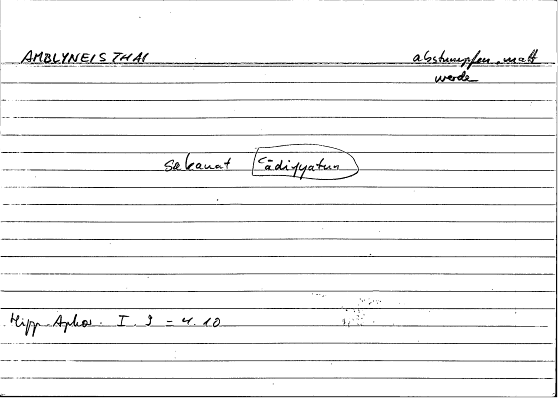 AMBLYNEISTHAI abstumpfen, matt
werde
sakanat ʿādiyatun
Hipp. Aphor. I. 9 = 4.10